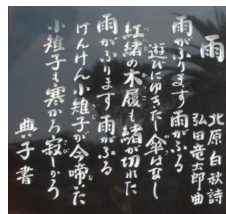 雨
北原白秋詩
弘田竜太郎曲
雨がふります雨がふる
遊びにゆきたし傘はなし
紅緒の木履も緒が切れた
雨がふります雨がふる
けんけん小雉子が今啼いた
小雉子も寒かろ寂しかろ
典子書